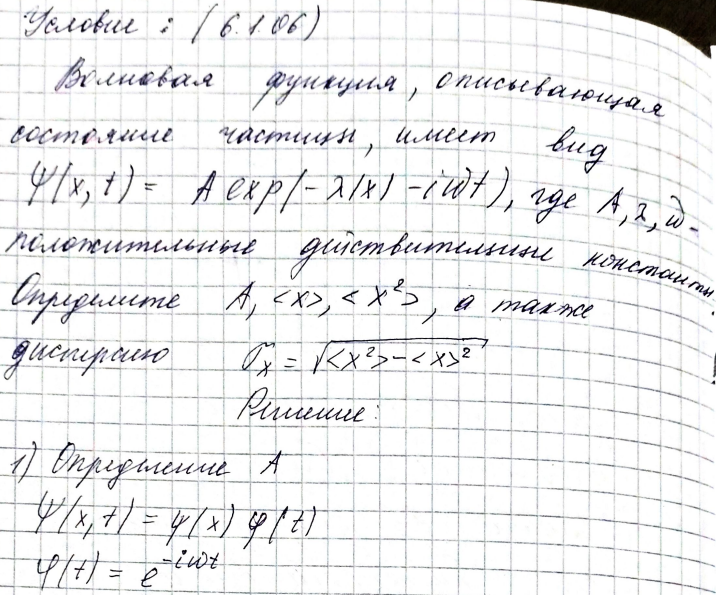 Условие : (6.1.06)
Волновая функция, описывающая
состояние частицы, имеет вид
Ψ(x, t) = A exp(-λ|x| - iωt), где A, λ, ω -
положительные действительные константы.
Определите A, <x>, <x²>, а также
дисперсию σₓ = √<x²> - <x>²
Решение:
1) Определение A
Ψ(x, t) = ψ(x) φ(t)
φ(t) = e^{-iωt}